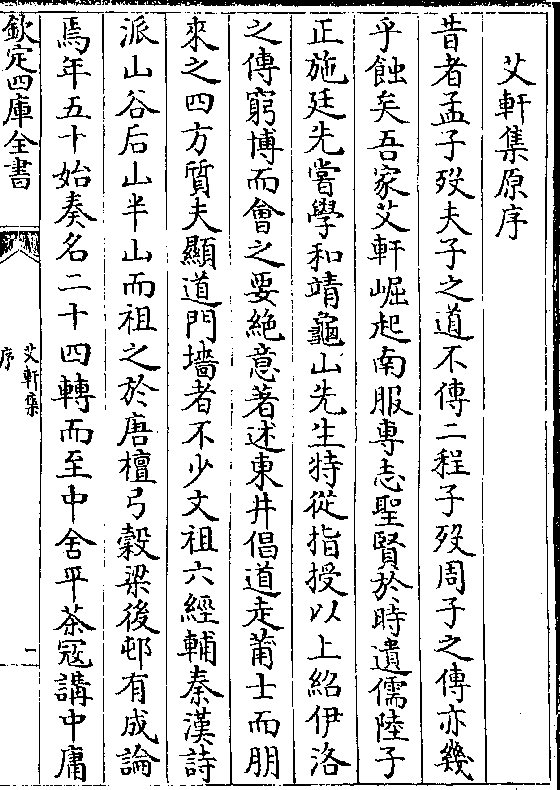 艾軒集原序
昔者孟子歿夫子之道不傳二程子歿周子之傳亦幾
乎蝕矣吾家艾軒崛起南服專志聖賢於時遺儒陸子
正施廷先嘗學和靖龜山先生特從指授以上紹伊洛
之傳窮博而會之要絶意著述東井倡道走莆士而朋
來之四方質夫顯道門墻者不少文祖六經輔秦漢詩
派山谷后山半山而祖之於唐檀弓穀梁後邨有成論
焉年五十始奏名二十四轉而至中舍平茶寇講中庸
欽定四庫全書
艾軒集
序
一